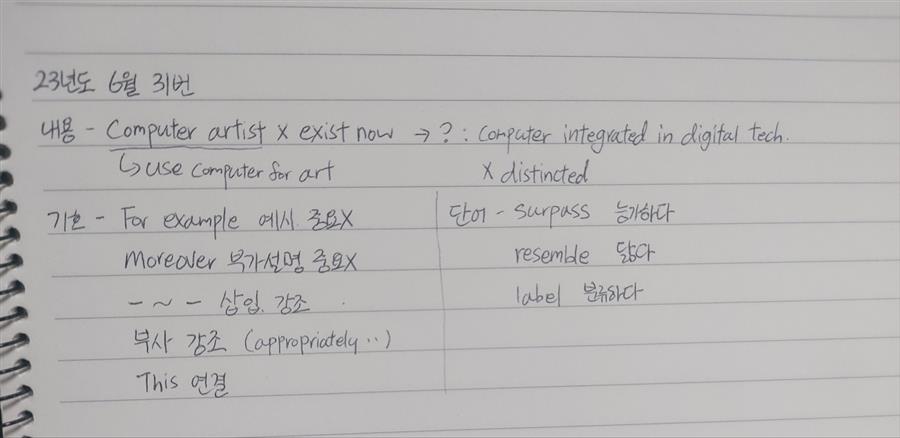 23년도 6월 31번
내용 - Computer artist x exist now → ? : computer integrated in digital tech.
↳ use computer for art x distincted
기호 - For example 예시. 중요X
Moreover 부가설명 중요X
- ~ - 삽입. 강조
부사 강조 (appropriately ‥)
This 연결
단어 - surpass 능가하다
resemble 닮다
label 분류하다